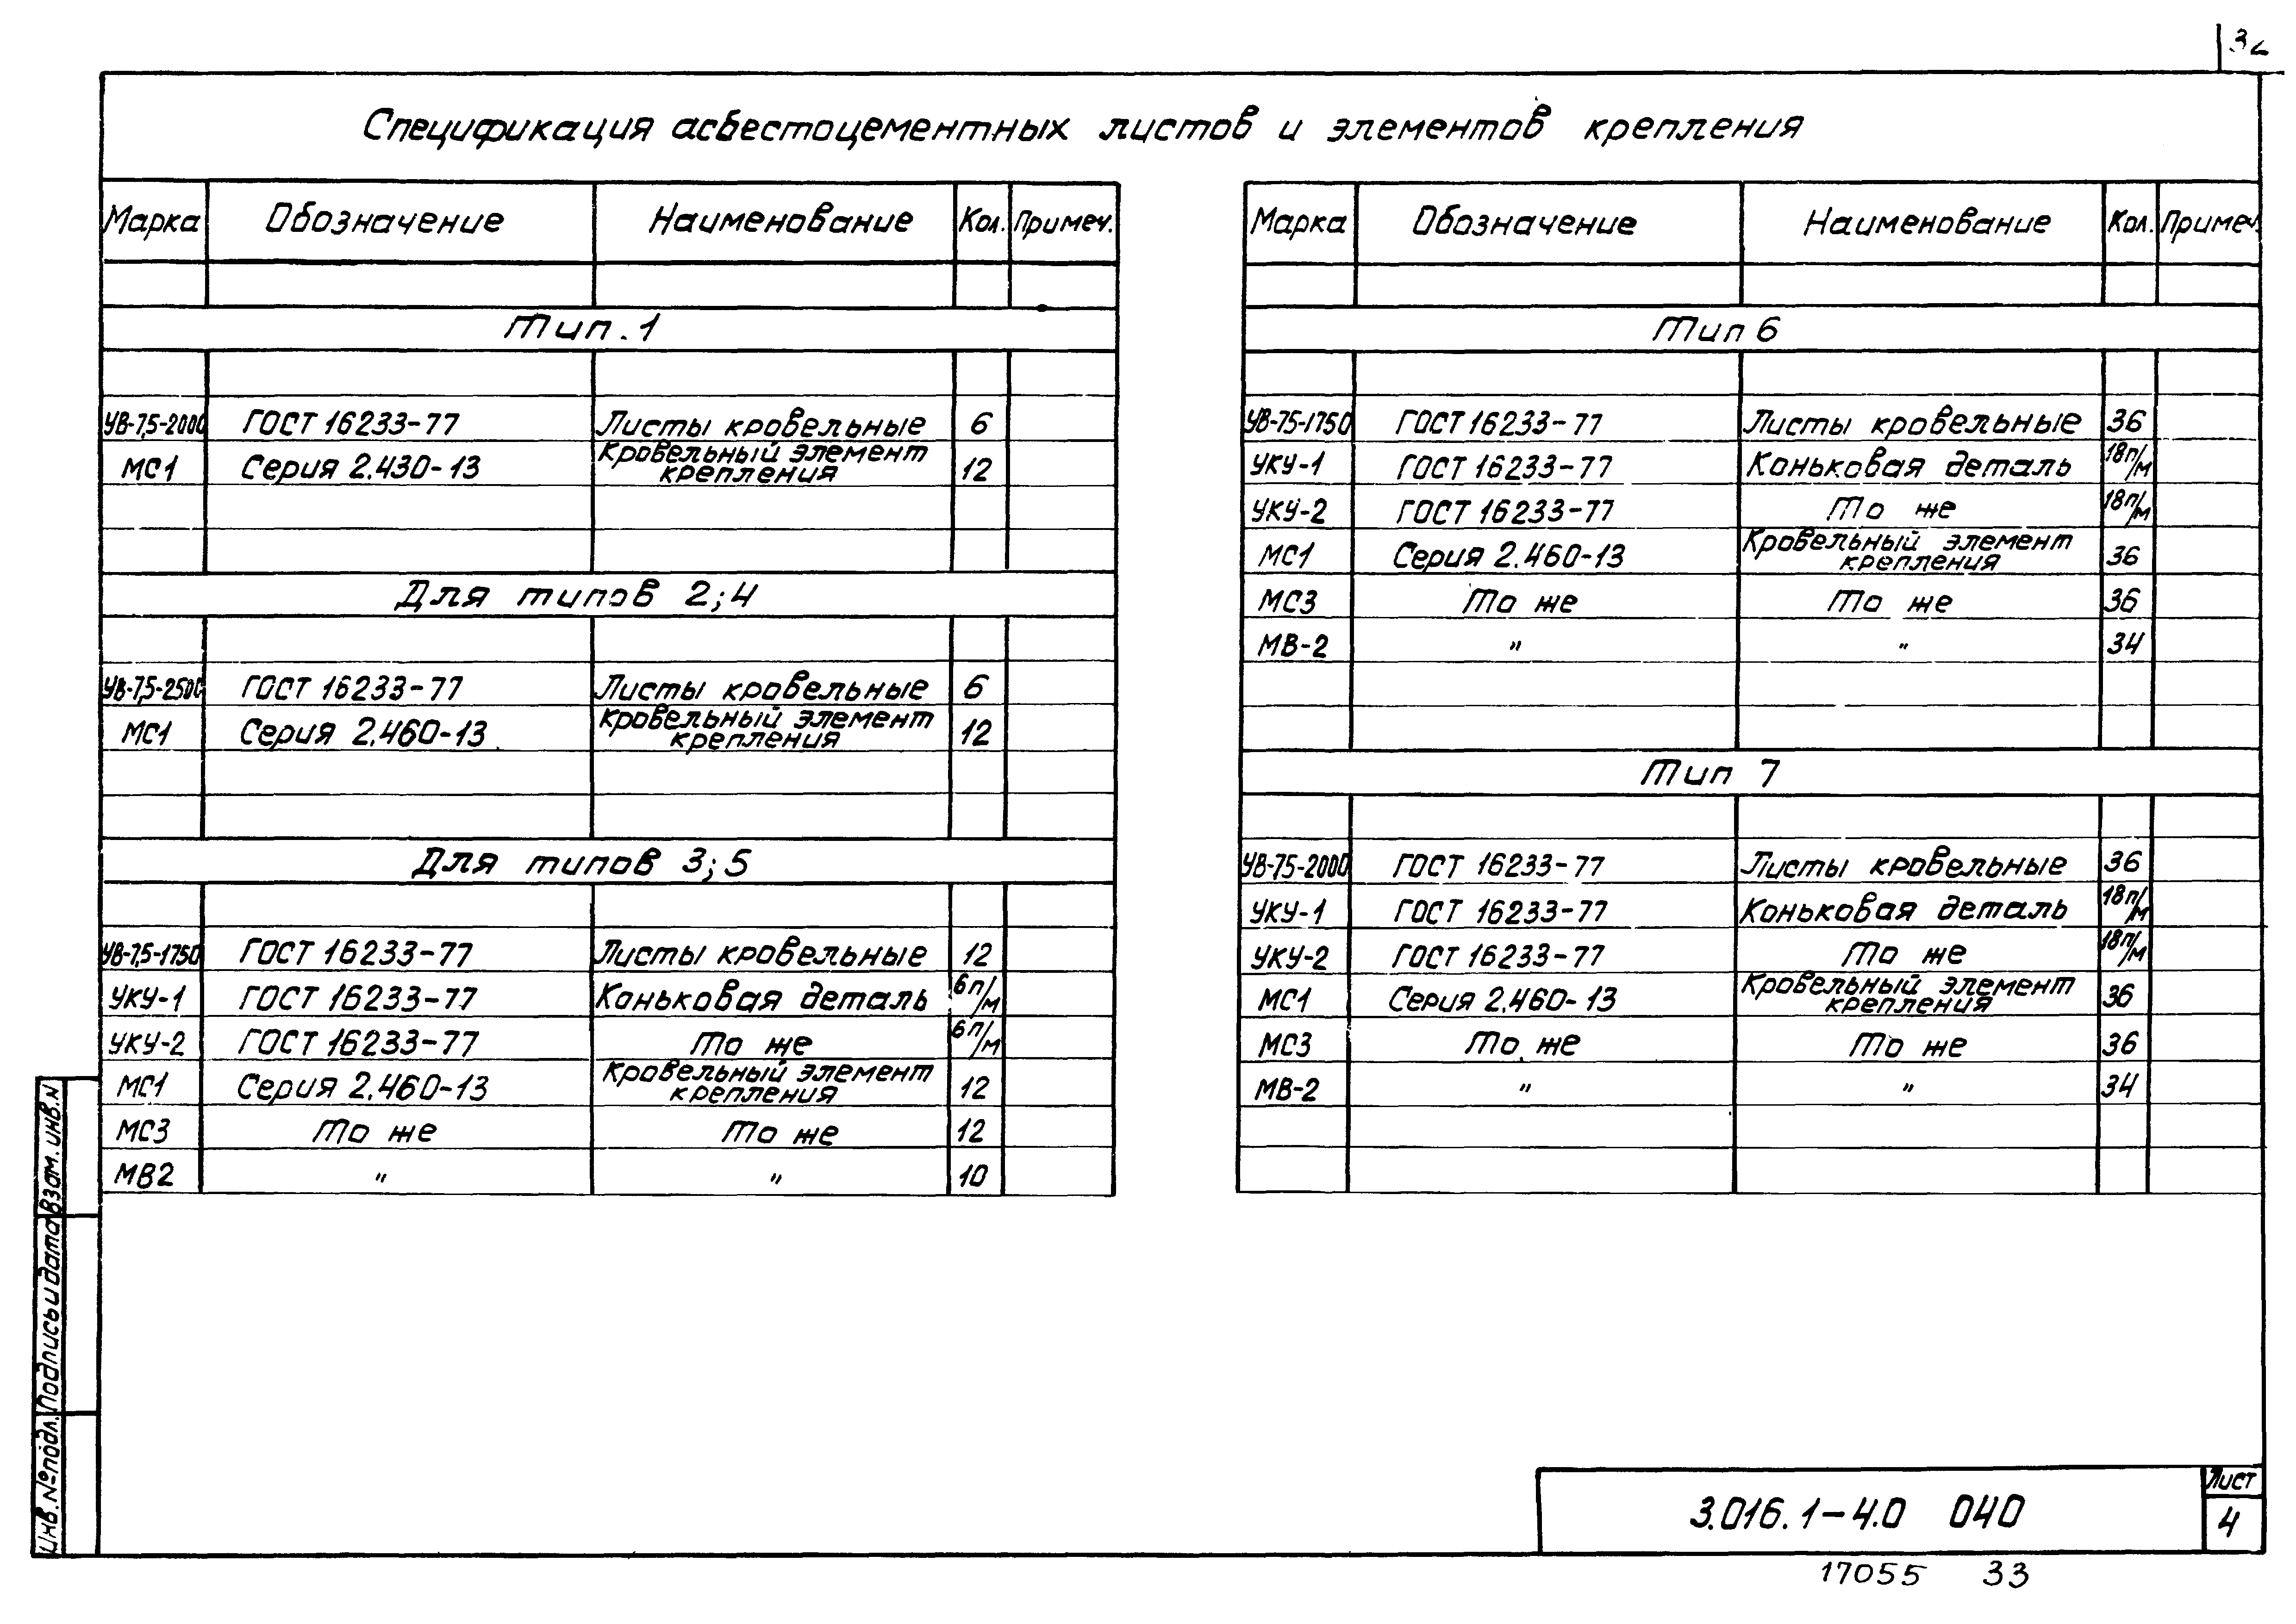 32
Спецификация асбестоцементных листов и элементов крепления
Марка Обозначение Наименование Кол. Примеч.
Тип. 1
УВ-7,5-2000 ГОСТ 16233-77 Листы кровельные 6
МС1 Серия 2.430-13 Кровельный элемент крепления 12
Для типов 2;4
УВ-7,5-2500 ГОСТ 16233-77 Листы кровельные 6
МС1 Серия 2.460-13 Кровельный элемент крепления 12
Для типов 3;5
УВ-7,5-1750 ГОСТ 16233-77 Листы кровельные 12
УКУ-1 ГОСТ 16233-77 Коньковая деталь 6п/м
УКУ-2 ГОСТ 16233-77 То же 6п/м
МС1 Серия 2.460-13 Кровельный элемент крепления 12
МС3 То же То же 12
МВ2 " " 10
Марка Обозначение Наименование Кол. Примеч.
Тип 6
УВ-75-1750 ГОСТ 16233-77 Листы кровельные 36
УКУ-1 ГОСТ 16233-77 Коньковая деталь 18п/м
УКУ-2 ГОСТ 16233-77 То же 18п/м
МС1 Серия 2.460-13 Кровельный элемент крепления 36
МС3 То же То же 36
МВ-2 " " 34
Тип 7
УВ-75-2000 ГОСТ 16233-77 Листы кровельные 36
УКУ-1 ГОСТ 16233-77 Коньковая деталь 18п/м
УКУ-2 ГОСТ 16233-77 То же 18п/м
МС1 Серия 2.460-13 Кровельный элемент крепления 36
МС3 То же То же 36
МВ-2 " " 34
Инв. № подл. Подпись и дата Взам. инв. N
3.016.1-4.0 040
Лист
4
17055 33